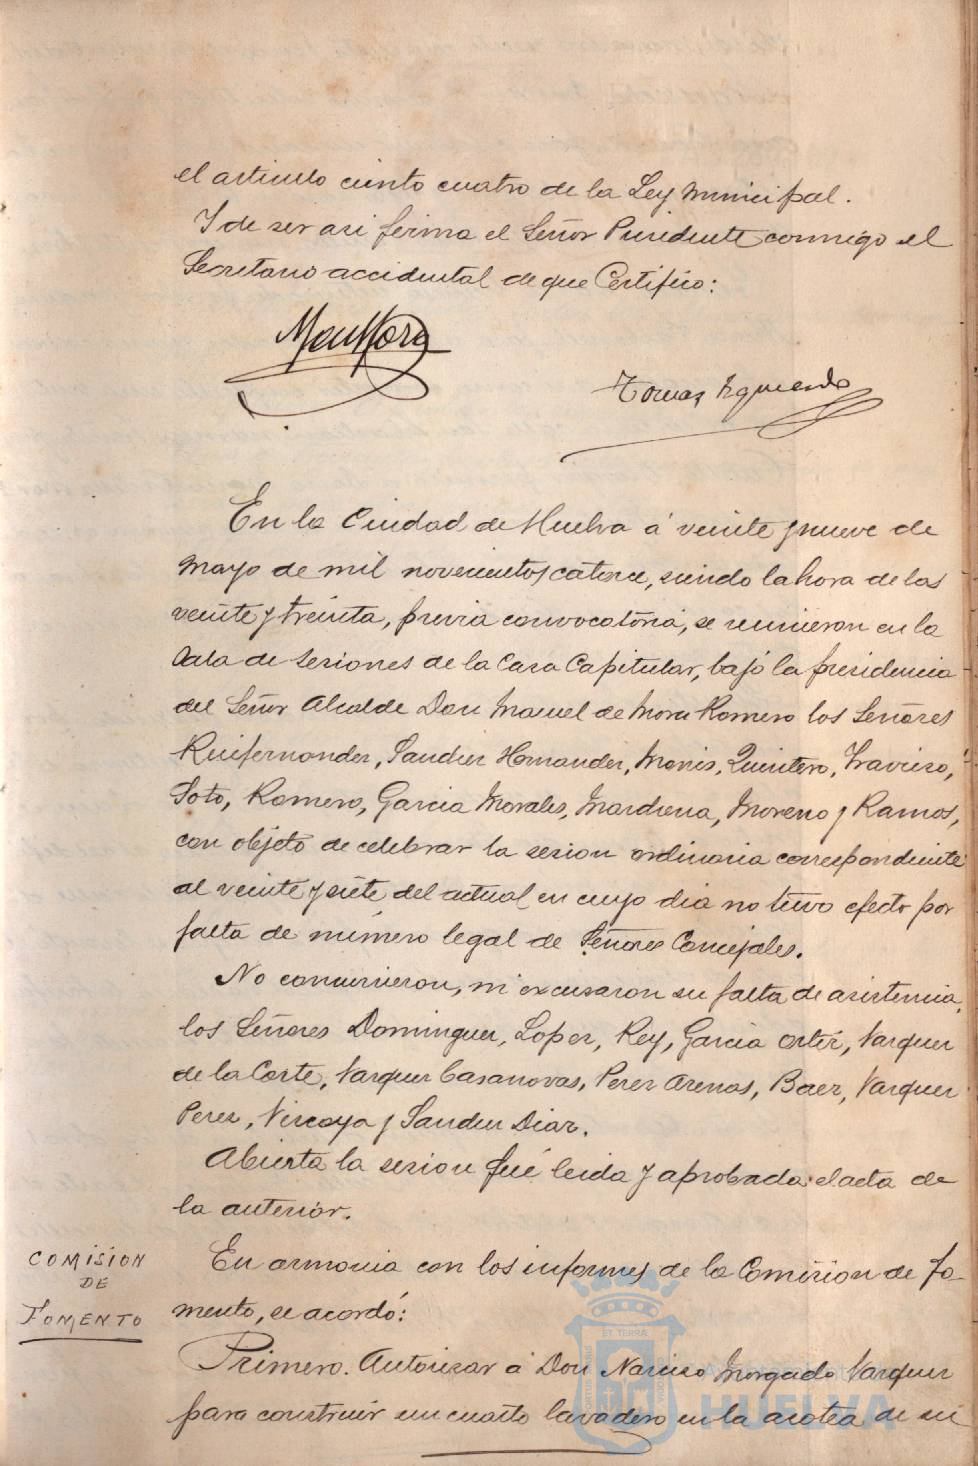 el articulo ciento cuatro de la Ley Municipal.
Y de ser asi firma el Señor Presidente conmigo el
Secretario accidental de que Certifico:
Tomas Izquierdo
En la Ciudad de Huelva á veinte y nueve de
Mayo de mil novecientos catorce, siendo la hora de las
veinte y treinta, previa convocatoria, se reunieron en la
Sala de Sesiones de la Casa Capitular, bajo la presidencia
del Señor Alcalde Don Manuel de Mora Romero los Señores
Ruifernandez, Sanchez Hernandez, Monis, Quintero, Travieso,
Soto, Romero, Garcia Morales, Marchena, Moreno y Ramos,
con objeto de celebrar la sesion ordinaria correspondiente
al veinte y siete del actual en cuyo dia no tuvo efecto por
falta de número legal de Señores Concejales.
No concurrieron, ni excusaron su falta de asistencia,
los Señores Dominguez, Lopez, Rey, Garcia Ortiz, Vazquez
de la Corte, Vazquez Casanovas, Perez Arenas, Baez, Vazquez
Perez, Vizcaya y Sanchez Diaz.
Abierta la sesion fué leida y aprobada el acta de
la anterior.
COMISION
DE
FOMENTO
En armonia con los informes de la Comision de Fo-
mento, se acordó:
Primero. Autorizar á Don Narciso Morgado Vazquez
para construir un cuarto lavadero en la azotea de su
ET TERRA
HUELVA